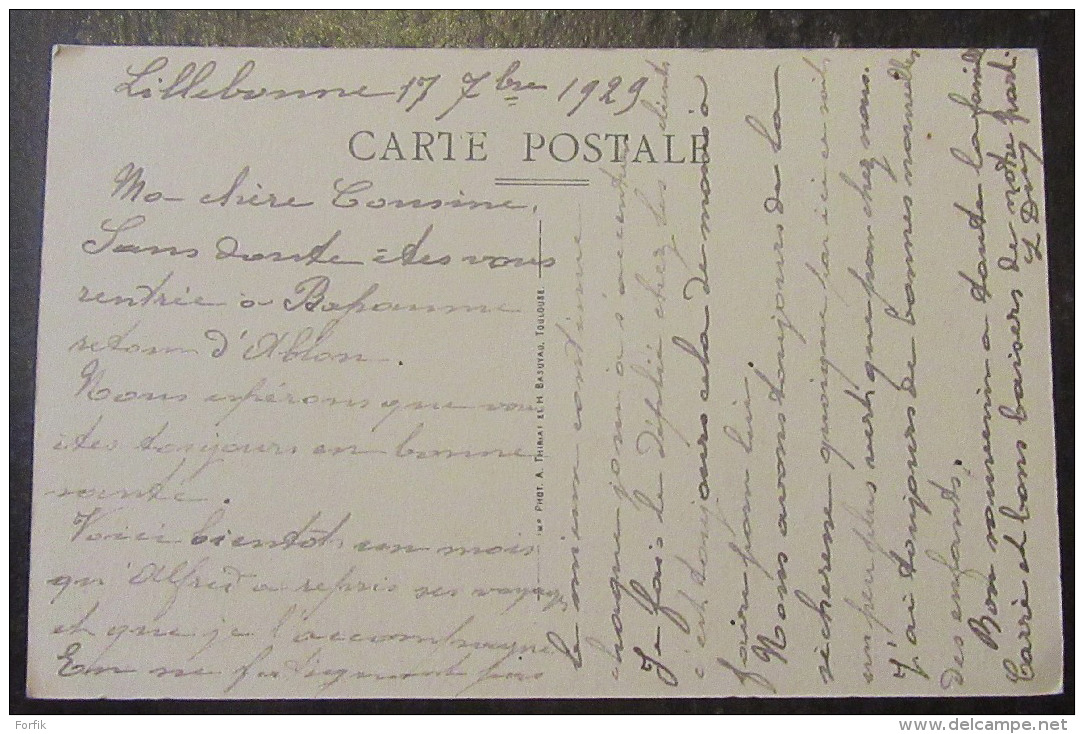 Lillebonne 17 7bre 1929
CARTE POSTALE
Ma chère Cousine,
Sans doute êtes vous
rentrée à Bapaume
retour d'Ablon.
Nous espérons que vous
êtes toujours en bonne
santé.
Voici bientôt un mois
qu'Alfred a repris ses voyages
et que je l'accompagne
En ne fatiguant pas
le mieux continue
chaque jour à s'accentuer
Je fais le déplié chez les clients
c'est toujours cela de moins à
faire pour lui.
Nous avons toujours de la
sécheresse quoique par ici ce soit
un peu plus vert que par chez nous.
J'ai toujours de bonnes nouvelles
des enfants.
Bon souvenir à toute la famille
Carré et bons baisers de notre part
IMP PHOT. A. THIRIAT ET H. BASUYAU, TOULOUSE.
Forfik
www.delcampe.net